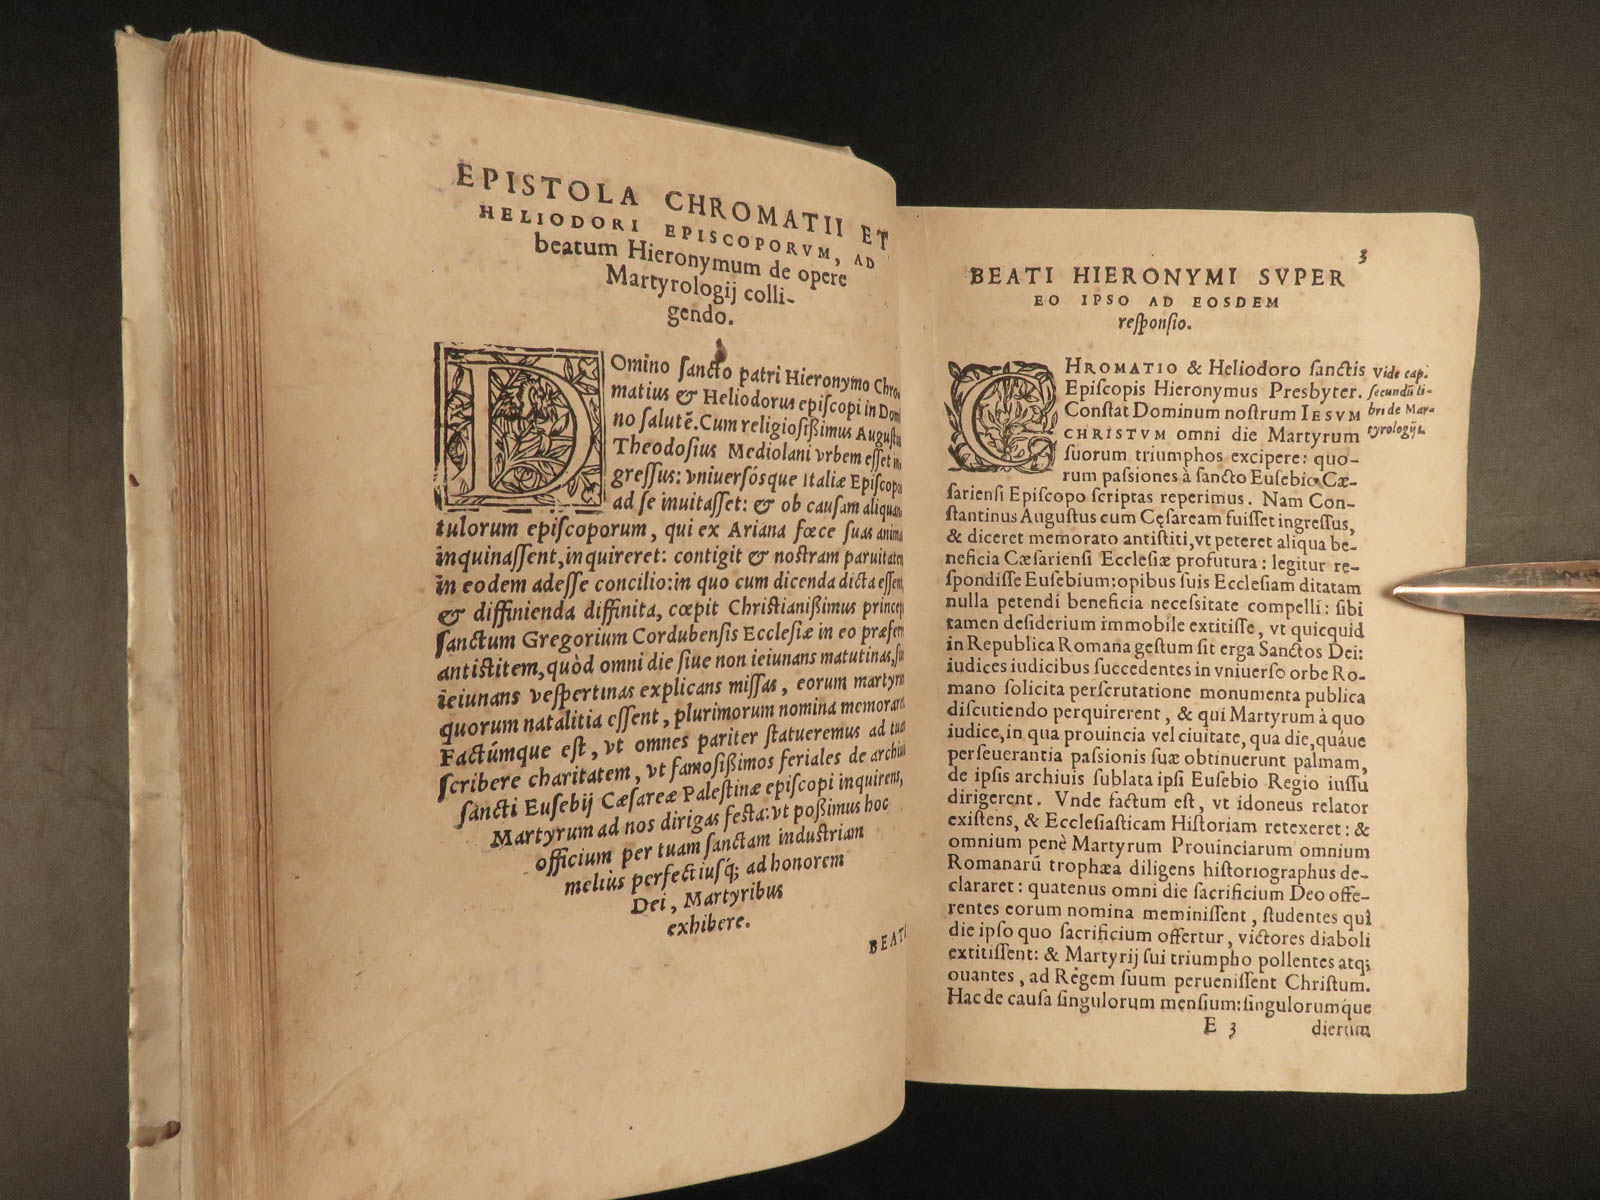 EPISTOLA CHROMATII ET
HELIODORI EPISCOPORVM, AD
beatum Hieronymum de opere
Martyrologij colli-
gendo.
DOmino ſancto patri Hieronymo Chro
matius & Heliodorus epiſcopi in Domi
no ſalutē. Cum religioſißimus Auguſtus
Theodoſius Mediolani vrbem eſſet in
greſſus: vniuerſósque Italiæ Epiſcopos
ad ſe inuitaſſet: & ob cauſam aliquan
tulorum epiſcoporum, qui ex Ariana fœce ſuas animas
inquinaſſent, inquireret: contigit & noſtram paruitatem
in eodem adeſſe concilio: in quo cum dicenda dicta eſſent,
& diffinienda diffinita, cœpit Chriſtianißimus princeps
ſanctum Gregorium Cordubenſis Eccleſiæ in eo præferre
antiſtitem, quòd omni die ſiue non ieiunans matutinas, ſiu
ieiunans veſpertinas explicans miſſas, eorum martyrū
quorum natalitia eſſent, plurimorum nomina memoraret.
Factúmque eſt, vt omnes pariter ſtatueremus ad tuam
ſcribere charitatem, vt famoſißimos feriales de archiuis
ſancti Euſebij Cæſareæ Palæſtinæ epiſcopi inquirens,
Martyrum ad nos dirigas feſta: vt poßimus hoc
officium per tuam ſanctam induſtriam
meliùs perfectiuſq; ad honorem
Dei, Martyribus
exhibere.
BEATI
3
BEATI HIERONYMI SVPER
EO IPSO AD EOSDEM
reſponſio.
CHROMATIO & Heliodoro ſanctis
Epiſcopis Hieronymus Presbyter.
Conſtat Dominum noſtrum IESVM
CHRISTVM omni die Martyrum
ſuorum triumphos excipere: quo-
rum paſsiones à ſancto Euſebio Cæ-
ſarienſi Epiſcopo ſcriptas reperimus. Nam Con-
ſtantinus Auguſtus cum Cęſaream fuiſſet ingreſſus,
& diceret memorato antiſtiti, vt peteret aliqua be-
neficia Cæſarienſi Eccleſiæ profutura: legitur re-
ſpondiſſe Euſebium: opibus ſuis Eccleſiam ditatam
nulla petendi beneficia neceſsitate compelli: ſibi
tamen deſiderium immobile extitiſſe, vt quicquid
in Republica Romana geſtum ſit erga Sanctos Dei:
iudices iudicibus ſuccedentes in vniuerſo orbe Ro-
mano ſolicita perſcrutatione monumenta publica
diſcutiendo perquirerent, & qui Martyrum à quo
iudice, in qua prouincia vel ciuitate, qua die, quáue
perſeuerantia paſsionis ſuæ obtinuerunt palmam,
de ipſis archiuis ſublata ipſi Euſebio Regio iuſſu
dirigerent. Vnde factum eſt, vt idoneus relator
exiſtens, & Eccleſiaſticam Hiſtoriam retexeret: &
omnium penè Martyrum Prouinciarum omnium
Romanarū trophæa diligens hiſtoriographus de-
clararet: quatenus omni die ſacrificium Deo offe-
rentes eorum nomina meminiſſent, ſtudentes qui
die ipſo quo ſacrificium offertur, victores diaboli
extitiſſent: & Martyrij ſui triumpho pollentes atq;
ouantes, ad Regem ſuum perueniſſent Chriſtum.
Hac de cauſa ſingulorum menſium: ſingulorumque
E 3 dierum
Vide capi.
ſecundū li-
bri de Mar-
tyrologijs.